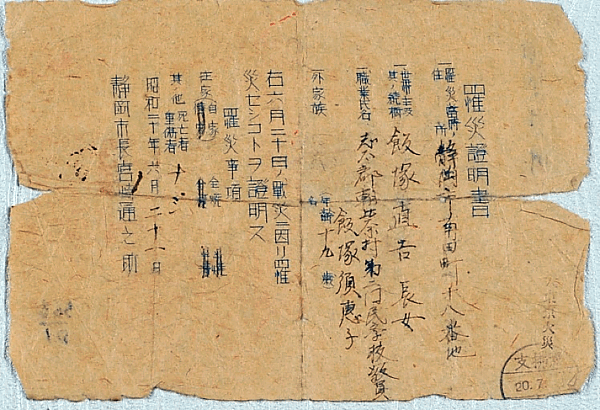 罹災證明書
一、罹災場所
住所 静岡市 町十八番地
一、世帯主及其ノ続柄 飯塚直吉 長女
一、職業氏名 志太郡朝比奈村第 国民学校教員
飯塚須恵子
(年齢 十九 歳)
外家族 名
右六月二十日ノ戰災ニ因リ罹
災セシコトヲ證明ス
罹災事項
住家 自家 全焼
其他 死亡者 重傷者 ナシ
昭和二十年六月二十六日
静岡市長宮崎通之助
支
20.7